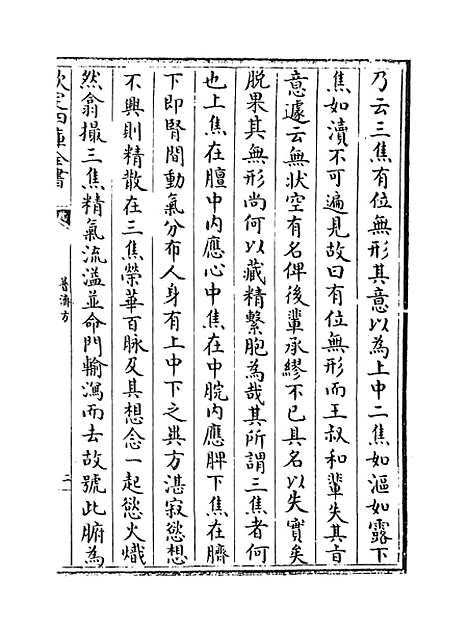 乃云三焦有位無形其意以為上中二焦如漚如露下
焦如瀆不可遍見故曰有位無形而王叔和輩失其旨
意遽云無狀空有名俾後輩承繆不已且名以失實矣
脱果其無形尚何以藏精繫胞為哉其所謂三焦者何
也上焦在膻中内應心中焦在中脘内應脾下焦在臍
下即腎間動氣分布人身有上中下之異方湛寂慾想
不興則精散在三焦榮華百脉及其想念一起慾火熾
然翕撮三焦精氣流溢並命門輸瀉而去故號此腑為
欽定四庫全書
普濟方